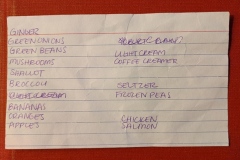 GINGER
GREEN ONIONS
GREEN BEANS
MUSHROOMS
SHALLOT
BROCCOLI
BANANAS
ORANGES
APPLES
COFFEE CREAMER
SELTZER
FROZEN PEAS
CHICKEN
SALMON